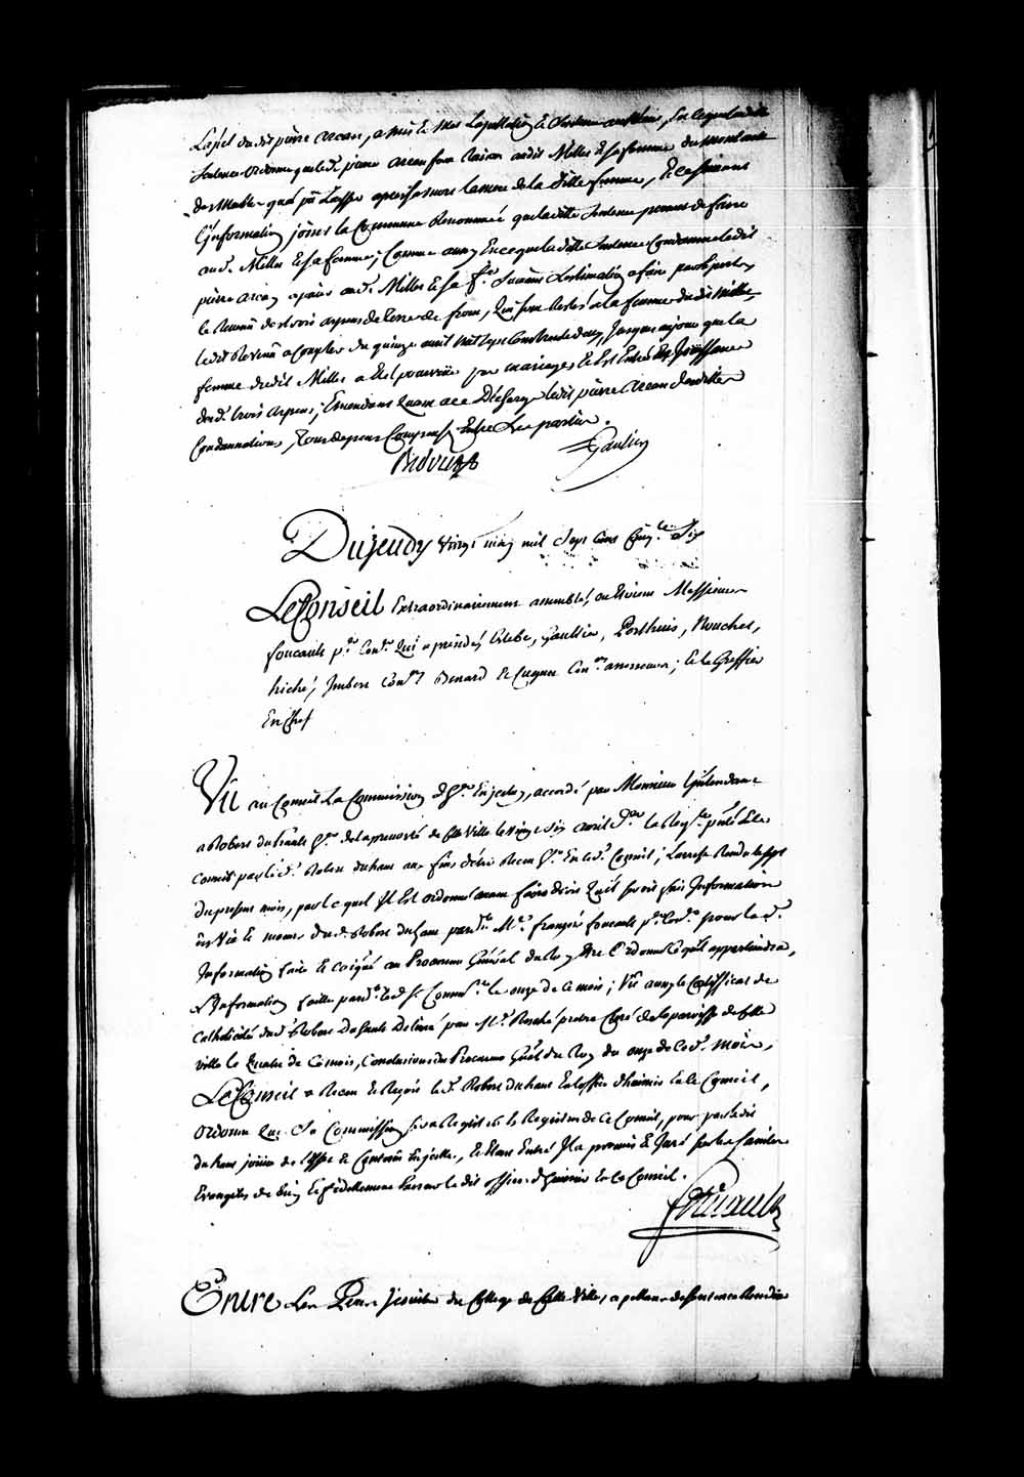 Lapel dudit pierre arcan, a mis et met Lapellation et Sentence au Neant, en ce que ladite
Sentence ordonne que led. pierre arcan fera Raison audit Milles et sa femme du montant
des Meubles qua pû Laisser apres sa mort la mere de la dite femme, et ce suivant
L'information joint la Commune Renommée que ladite Sentence permet de faire
aud. Milles et sa femme; Comme aussy En ce que la dite Sentence Condamne ledit
pierre arcan a paier aud. Milles et sa fe. Suivant L'estimation a faire par Experts
le Revenu des trois arpens de terre de front, qui sont Restés a la femme dudit Milles,
ledit Revenu a Compter du quinze avril mil sept cent trente deux, Jusques au jour que la
femme dudit Milles a Esté pourvûe par mariage, et Est Entré En Jouissance
desd. trois arpens; Emendant quant a ce Décharge ledit pierre arcan desdites
Condamnations, tous depens Compensés Entre Les parties.
Gaultier
Du jeudy vingt may mil Sept cent Cinqte Six
Le Conseil Extraordinairement assemblé, ou Etoient Messieurs
foucault pr. Conr. qui a présidé, Gaultier, Porthuis, Nouchet,
hiché, Imbert Conrs Benard et Cugnet Conrs assesseurs; et le Greffier
En Chef
Vû au Conseil La Commission d'hr. En iceluy, accordé par Monsieur L'Intendant
a Robert duhault hr. de la prevosté de Cette Ville le vingt six avril der la Reqte. pnté Et le
Conseil par led. Robert duhaut aux fins d'être Receu hr. En led. Conseil; L'arrest Rendu le sept
du present mois, par le quel Il Est ordonné avant faire droit qu'il seroit fait Information
des Vie et moeurs dud. Robert duhaut par dt. Me. françois foucault pr. Conr. pour lad.
Information faite et Coñiqué au Procureur Général du Roy Etre Ordonné Ce qu'il appartiendra,
L'Information faitte pard. le d. Sr. Commre. le onze de ce mois; Vû aussy le Certifficat de
Catholicité dud. Robert Duhault Delivré par Mr. Resché pretre Curé de la paroisse de Cette
ville le quatre de Ce mois, Conclusions du Procureur Gnêl du Roy du onze de Ced. mois,
Le Conseil a Receu et Reçoit le d. Robert duhaut En L'office d'huissier En le Conseil,
Ordonne Que Sa Commission sera Registrée Es Registres de Ce Conseil, pour par ledit
duhaut jouir de l'effet et Contenu En icelle, et Etant Entré Il a promis et Juré sur les Saintes
Evangiles de bien Et fidellement Exercer le dit office d'huissier En Ce Conseil.
foucault
Entre Les Peres Jesuites du College de Cette Ville, apellans de Sentence Rendüe